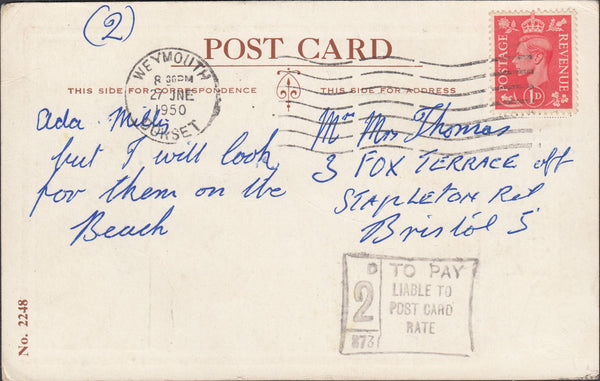 (2)
POST CARD
WEYMOUTH
8 30PM
27 JNE
1950
DORSET
POSTAGE
REVENUE
1D
THIS SIDE FOR CORRESPONDENCE
THIS SIDE FOR ADDRESS
Ada Mills
but I will look
for them on the
Beach
Mr Mrs Thomas
3 FOX TERRACE off
STAPLETON Rd
Bristol 5
D
2
873
TO PAY
LIABLE TO
POST CARD
RATE
No. 2248